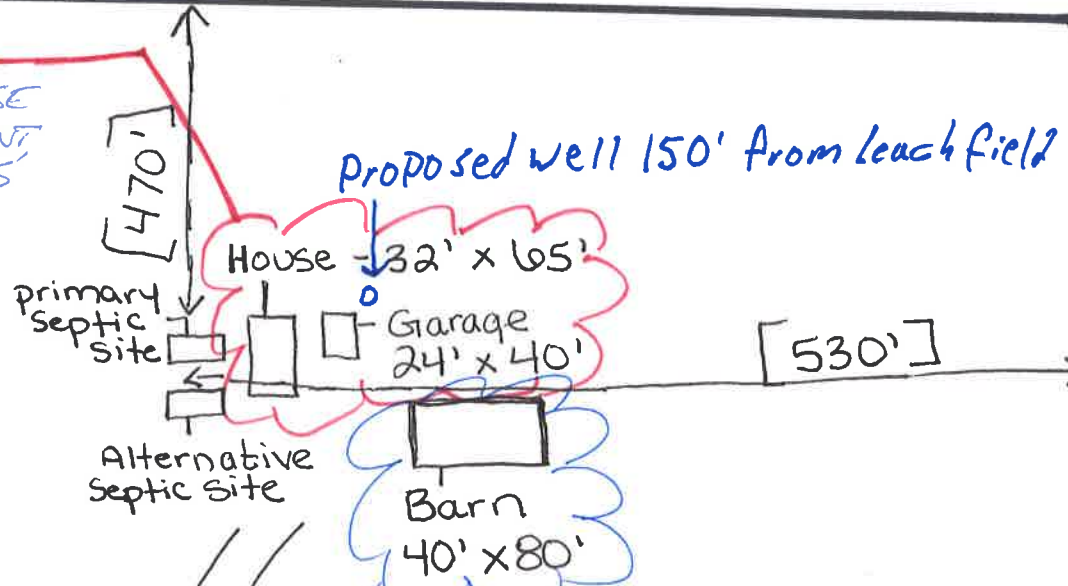 Proposed well 150' from leach field
[470']
House - 32' x 65'
primary
septic
site
Garage
24' x 40'
[530']
Alternative
septic site
Barn
40' x 80'